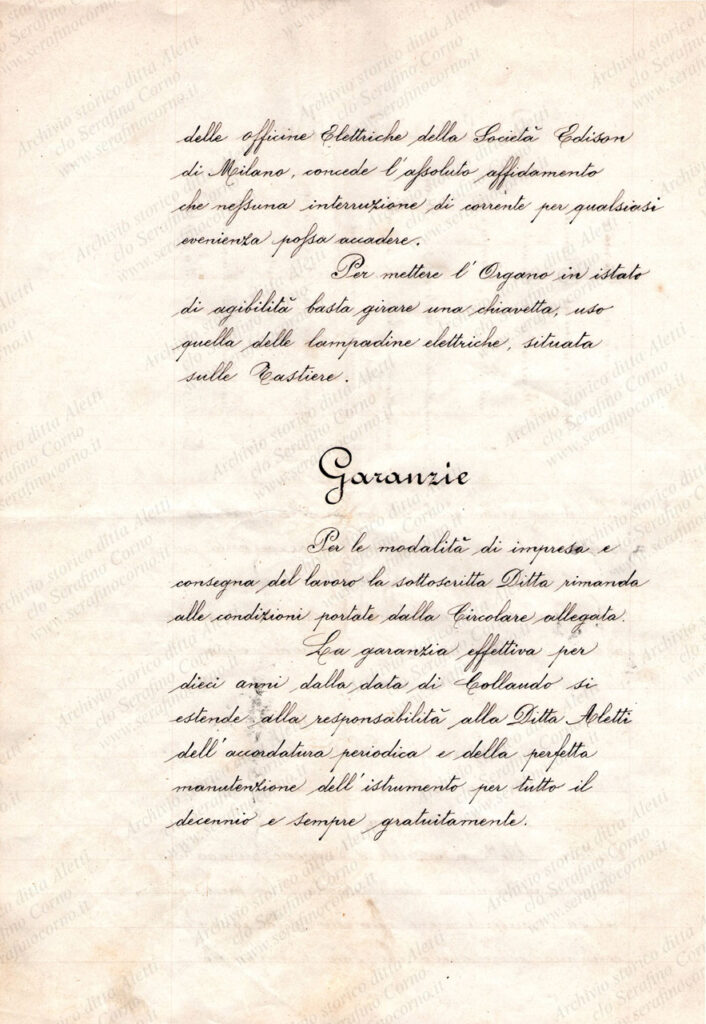 delle officine Elettriche della Società Edison
di Milano, concede l'assoluto affidamento
che nessuna interruzione di corrente per qualsiasi
evenienza possa accadere.
Per mettere l'Organo in istato
di agibilità basta girare una chiavetta, uso
quella delle lampadine elettriche, situata
sulle Tastiere.
Garanzie
Per le modalità di impresa e
consegna del lavoro la sottoscritta Ditta rimanda
alle condizioni portate dalla Circolare allegata.
La garanzia effettiva per
dieci anni dalla data di Collaudo si
estende alla responsabilità alla Ditta Aletti
dell'accordatura periodica e della perfetta
manutenzione dell'istrumento per tutto il
decennio e sempre gratuitamente.
Archivio storico ditta Aletti
c/o Serafino Corno
www.serafinocorno.it